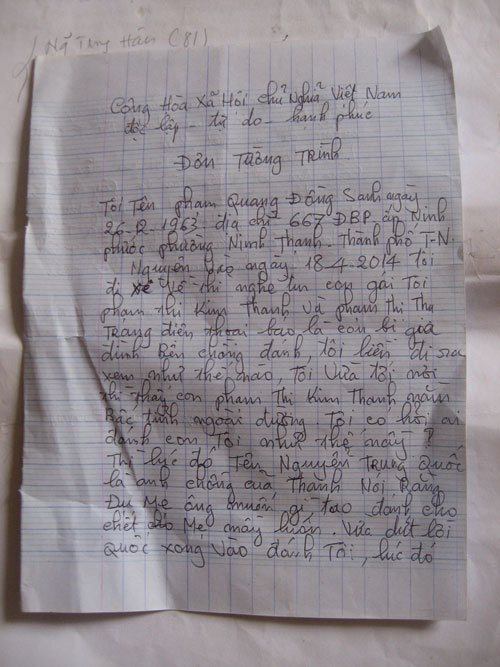 Cộng Hòa Xã Hội chủ Nghĩa Việt Nam
độc lập - tự do - hạnh phúc
Đơn Tường Trình
Tôi Tên phạm Quang Đông Sanh ngày
26-12-1963 địa chỉ 667 ĐBP. ấp Ninh
phước phường Ninh Thạnh - Thành phố T-N.
Nguyên ngày 18-4-2014 tôi
đi về thì nghe tin con gái Tôi
phạm thị Kim Thanh và phạm Thị Thu
Trang điện thoại báo là con bị gia
đình Bên chồng đánh, tôi liền đi ra
xem như thế nào, Tôi vừa tới nơi
thì thấy con phạm Thị Kim Thanh nằm
Bất tỉnh ngoài đường. Tôi có hỏi ai
đánh con Tôi như thế này ?
Thì lúc đó Tên Nguyễn Trung Quốc
là anh chồng của Thanh Nói Rằng
Đu Mẹ ông muốn gì, tao đánh cho
chết Mẹ mày luôn. Vừa dứt lời
Quốc xông vào đánh Tôi, lúc đó